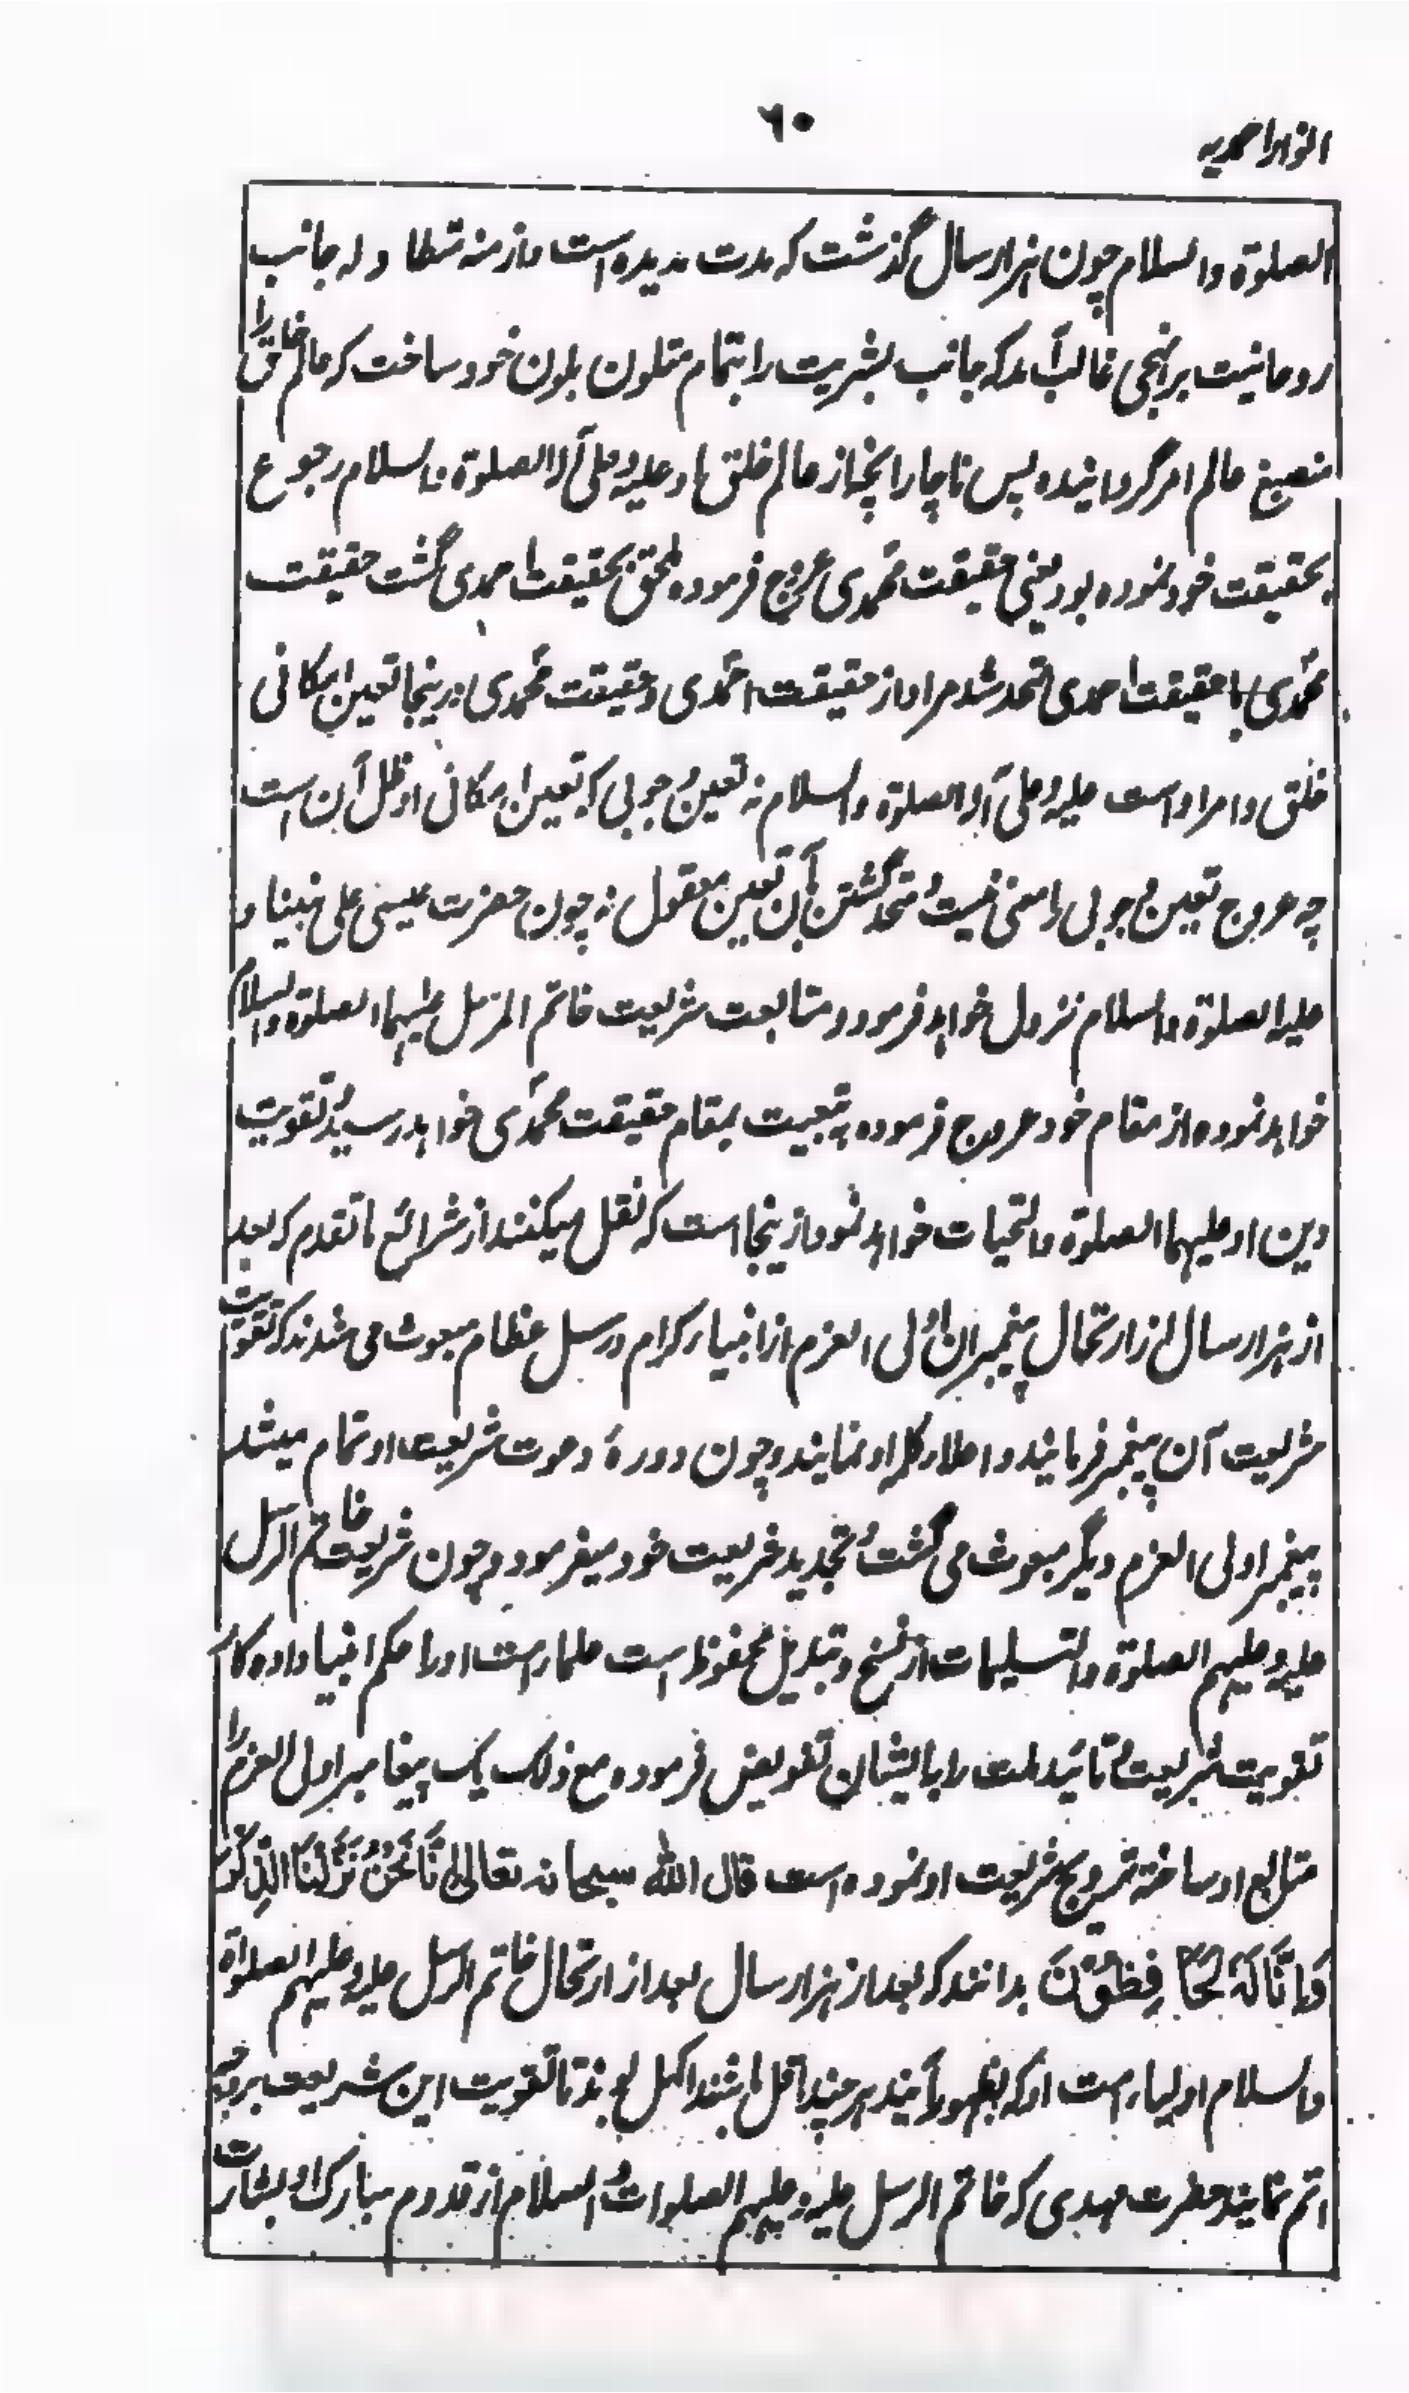 انوار احمدیه
٦٠
الصلوة والسلام چون هزار سال گذشت که مدت مدیده است وازمنه متطاوله جانب
روحانیت برنهجی غالب آمد که جانب بشریت را بتمام متلون بلون خود ساخت که عالم خلق را
منصبغ عالم امر گردانیده پس ناچار انچه از عالم خلق او علیه وعلی آله الصلوة والسلام رجوع
بحقیقت خود نموده بود یعنی حقیقت محمدی عروج فرموده ملحق بحقیقت احمدی گشت حقیقت
محمدی با حقیقت احمدی متحد شد مراد از حقیقت احمدی و حقیقت محمدی درینجا تعین امکانی
خلق وامر اوست علیه وعلی آله الصلوة والسلام نه تعین وجوبی که تعین امکانی او ظل آن است
چه عروج تعین وجوبی را معنی نیست و متحد گشتن بآن تعین معقول نه چون حضرت عیسی علی نبینا و
علیه الصلوة والسلام نزول خواهد فرمود و متابعت شریعت خاتم الرسل علیهما الصلوة والسلام
خواهد نمود از مقام خود عروج فرموده به تبعیت بمقام حقیقت محمدی خواهد رسید و تقویت
دین او علیهما الصلوة والتحیات خواهد نمود ازینجا است که نقل میکنند از شرائع ما تقدم که بعد
از هزار سال از ارتحال پیغمبران اولی العزم از انبیاء کرام ورسل عظام مبعوث می شدند که تقویت
شریعت آن پیغمبر فرمایند و اعلاء کلمه او نمایند و چون دورهٔ دعوت شریعت او تمام میشد
پیغمبر اولی العزم دیگر مبعوث می گشت و تجدید شریعت خود میفرمود و چون شریعت خاتم الرسل
علیه وعلیهم الصلوة والتسلیمات از نسخ وتبدیل محفوظ است علماء امت او را حکم انبیا داده کار
تقویت شریعت و تائید ملت را بایشان تفویض فرموده مع ذلک یک پیغامبر اولی العزم را
متابع او ساخته ترویج شریعت او نموده است قال الله سبحانه تعالی اِنَّا نَحْنُ نَزَّلْنَا الذِّکْرَ
وَاِنَّا لَهُ لَحَافِظُوْنَ بدانند که بعد از هزار سال بعد از ارتحال خاتم الرسل علیه وعلیهم الصلواة
والسلام اولیاء امت او که بظهور آیند هر چند اقل باشند اکمل بوند تا تقویت این شریعت بر وجه
اتم نمایند حضرت مهدی که خاتم الرسل علیه وعلیهم الصلوات والسلام از قدوم مبارک او بشارت